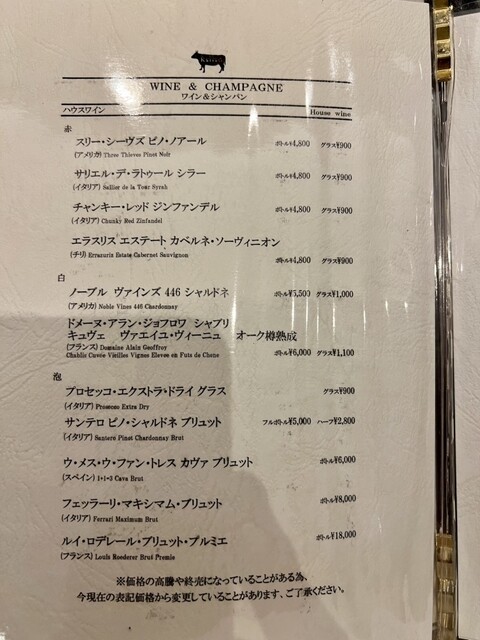 WINE & CHAMPAGNE
ワイン&シャンパン
ハウスワイン House wine
赤
スリー・シーヴズ ピノ・ノアール ボトル¥4,800 グラス¥900
(アメリカ) Three Thieves Pinot Noir
サリエル・デ・ラトゥール シラー ボトル¥4,800 グラス¥900
(イタリア) Sallier de la Tour Syrah
チャンキー・レッド ジンファンデル ボトル¥4,800 グラス¥900
(イタリア) Chunky Red Zinfandel
エラスリス エステート カベルネ・ソーヴィニオン
(チリ) Errazuriz Estate Cabernet Sauvignon ボトル¥4,800 グラス¥900
白
ノーブル ヴァインズ 446 シャルドネ ボトル¥5,500 グラス¥1,000
(アメリカ) Noble Vines 446 Chardonnay
ドメーヌ・アラン・ジョフロワ シャブリ
キュヴェ ヴァエイユ・ヴィーニュ オーク樽熟成
(フランス) Domaine Alain Geoffroy ボトル¥6,000 グラス¥1,100
Chablis Cuvée Vieilles Vignes Elevee en Futs de Chene
泡
プロセッコ・エクストラ・ドライ グラス グラス¥900
(イタリア) Prosecco Extra Dry
サンテロ ピノ・シャルドネ ブリュット フルボトル¥5,000 ハーフ¥2,800
(イタリア) Santero Pinot Chardonnay Brut
ウ・メス・ウ・ファン・トレス カヴァ ブリュット ボトル¥6,000
(スペイン) 1+1=3 Cava Brut
フェッラーリ・マキシマム・ブリュット ボトル¥8,000
(イタリア) Ferrari Maximum Brut
ルイ・ロデレール・ブリュット・プルミエ ボトル¥18,000
(フランス) Louis Roederer Brut Premie
※価格の高騰や終売になっていることがある為、
今現在の表記価格から変更していることがあります、ご了承ください。